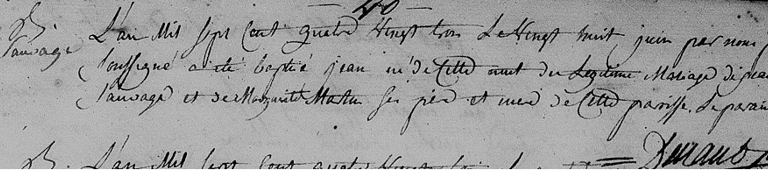 40
Bt. L'an Mil Sept Cent quatre Vingt trois Le Vingt huit juin par nous
Sauvage Soussigné a été baptisé jean né de Cette nuit du Legitime Mariage de jean
Sauvage et de Marguerite Martin ses pere et mere de Cette parisse, Le parain
Bt. L'an Mil Sept Cent quatre Vingt trois Durand